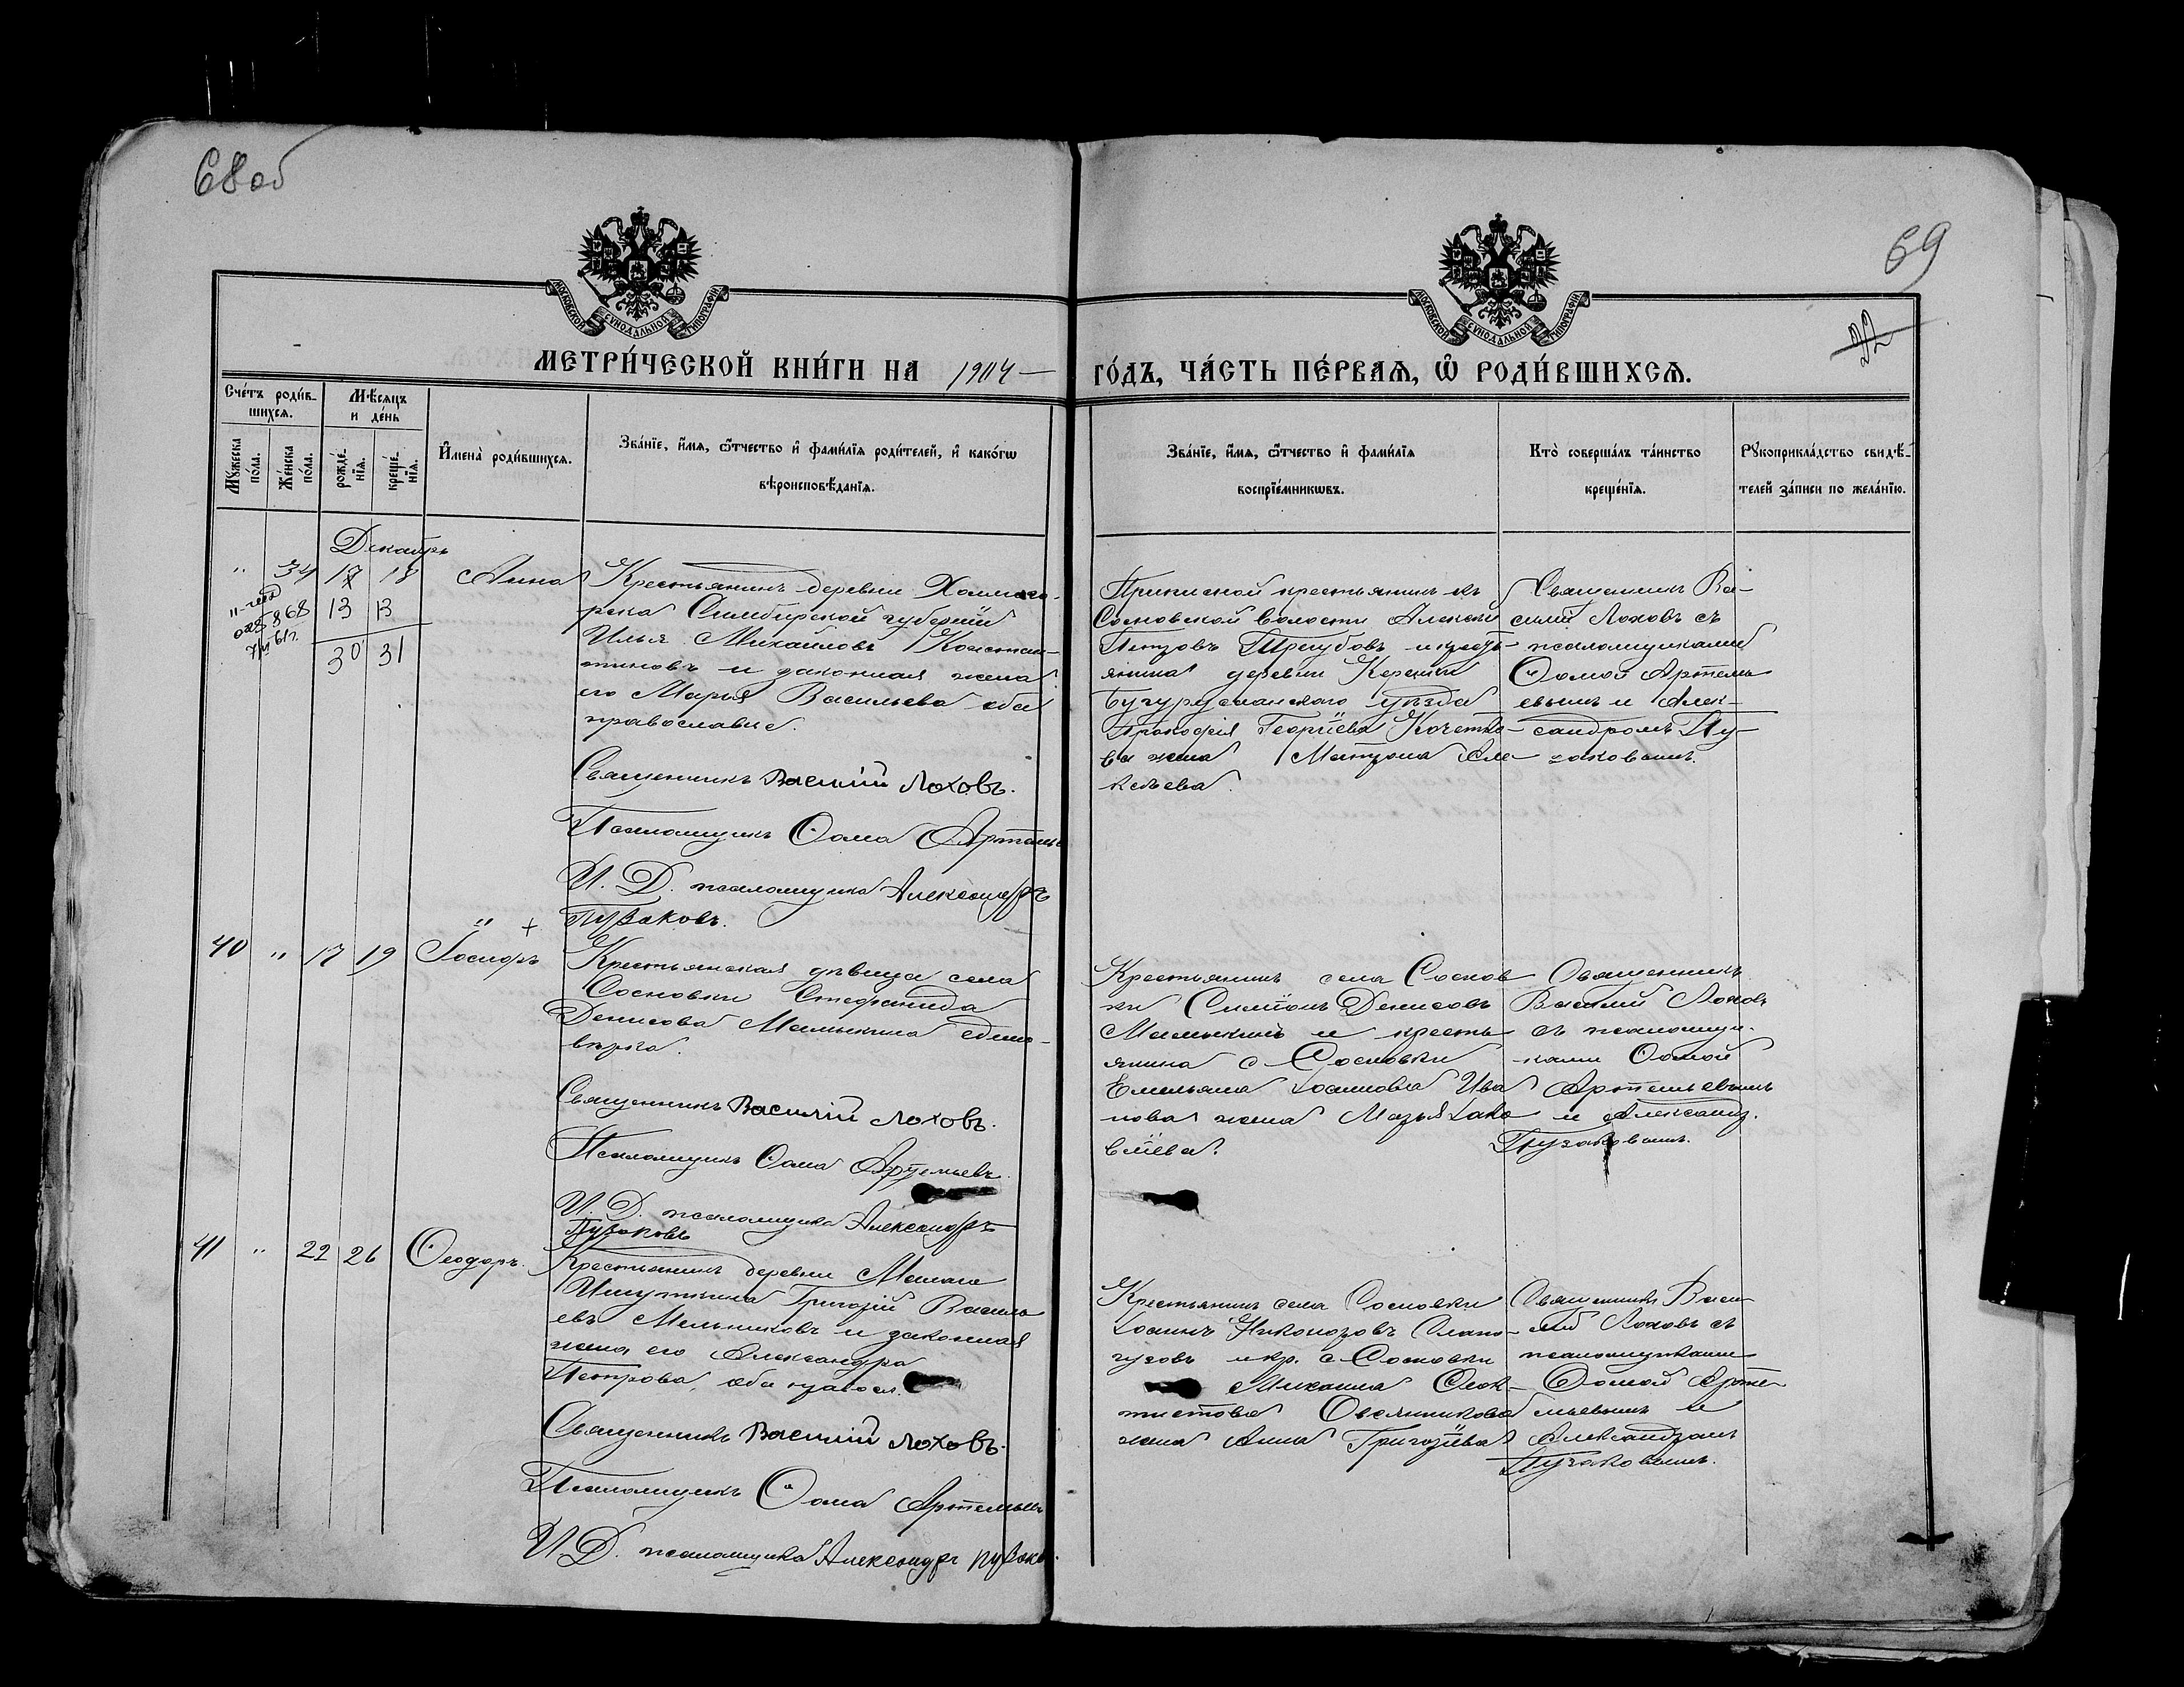 68 об
69
22
МОСКОВСКОЙ СѴНОДАЛЬНОЙ ТИПОГРАФІИ
МОСКОВСКОЙ СѴНОДАЛЬНОЙ ТИПОГРАФІИ
МЕТРИ́ЧЕСКОЙ КНИ́ГИ НА 1904 ГО́ДЪ, ЧА́СТЬ ПЕ́РВАЯ, Ѡ҆ РОДИ́ВШИХСЯ.
Сче́тъ роди́в-
шихся.
Мѣ́сяцъ
и де́нь
Мꙋ́жеска по́ла.
Же́нска по́ла.
рожде́-
нїя.
креще́-
нїя.
И҆мена̀ роди́вшихся.
Зва́нїе, и҆́мя, ѻ҆́тчество и҆ фами́лїя роди́телей, и҆ како́гѡ
вѣроисповѣ́данїя.
Зва́нїе, и҆́мя, ѻ҆́тчество и҆ фами́лїя
воспрїе́мникѡвъ.
Кто̀ соверша́лъ та́инство
креще́нїя.
Рꙋкоприкла́дство свидѣ́-
телей за́писи по жела́нїю.
Декабрь
" 34 17 18 Анна
868 13 13
30 31
Крестьянинъ деревни
Симбирской губерніи
Илья Михайловъ Констан-
тиновъ и законная жена
его Марья Васильева оба
православные.
Священникъ Василій Лоховъ.
Псаломщикъ Ѳома Артемьевъ
И. Д. псаломщика Александръ
Пузаковъ.
крестьянинъ
Сосновской волости Алексѣй
Петровъ Трегубовъ и кресть-
янина деревни
Бугурусланскаго уѣзда
Прокофія Георгіева Кочетко-
ва жена Матрона
Священникъ Ва-
силій Лоховъ съ
псаломщиками
Ѳомой Артемь-
евымъ и Алек-
сандромъ Пу-
заковымъ.
40 " 17 19
Крестьянская дѣвица села
Сосновки Стефанида
Денисова Мамыкина едино-
вѣрка.
Священникъ Василій Лоховъ.
Псаломщикъ Ѳома Артемьевъ.
И. Д. псаломщика Александръ
Пузаковъ
Крестьянинъ села Соснов-
ки Симеонъ Денисовъ
Мамыкинъ и кресть-
янина с. Сосновки
Емельяна Іоаннова Ива-
нова жена Марья Іако-
влева.
Священникъ
Василій Лоховъ
съ псаломщи-
ками Ѳомой
Артемьевымъ
и Александ.
Пузаковымъ.
41 " 22 26 Ѳеодоръ.
Крестьянинъ деревни Малаго
Ишуткина Григорій Василь-
евъ Мельниковъ и законная
жена его Александра
Петрова, оба правосл.
Священникъ Василій Лоховъ.
Псаломщикъ Ѳома Артемьевъ
И. Д. псаломщика Александръ Пузаковъ.
Крестьянинъ села Сосновки
Іоаннъ Никоноровъ
и кр. с. Сосновки
Михаила Ѳеок-
тистова Овсянникова
жена Анна Григорьева
Священникъ Васи-
лій Лоховъ съ
псаломщиками
Ѳомой Арте-
мьевымъ и
Александромъ
Пузаковымъ.